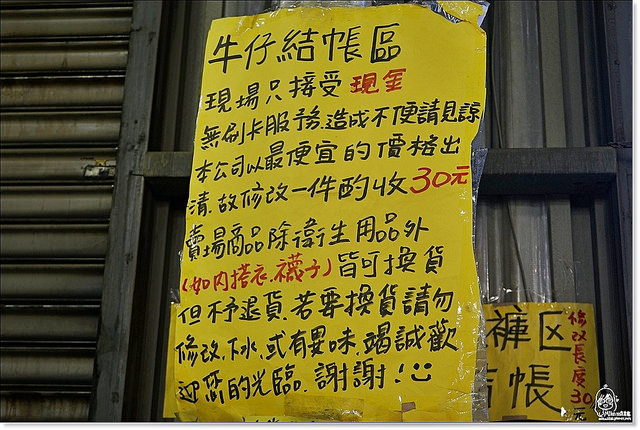 牛仔結帳區
現場只接受現金
無刷卡服務.造成不便請見諒
本公司以最便宜的價格出
清.故修改一件酌收30元
賣場商品除衛生用品外
(如內搭衣.襪子)皆可換貨
但不予退貨.若要換貨請勿
修改.下水.或有異味.竭誠歡
迎您的光臨.謝謝!
褲区
帳
修改長度30元